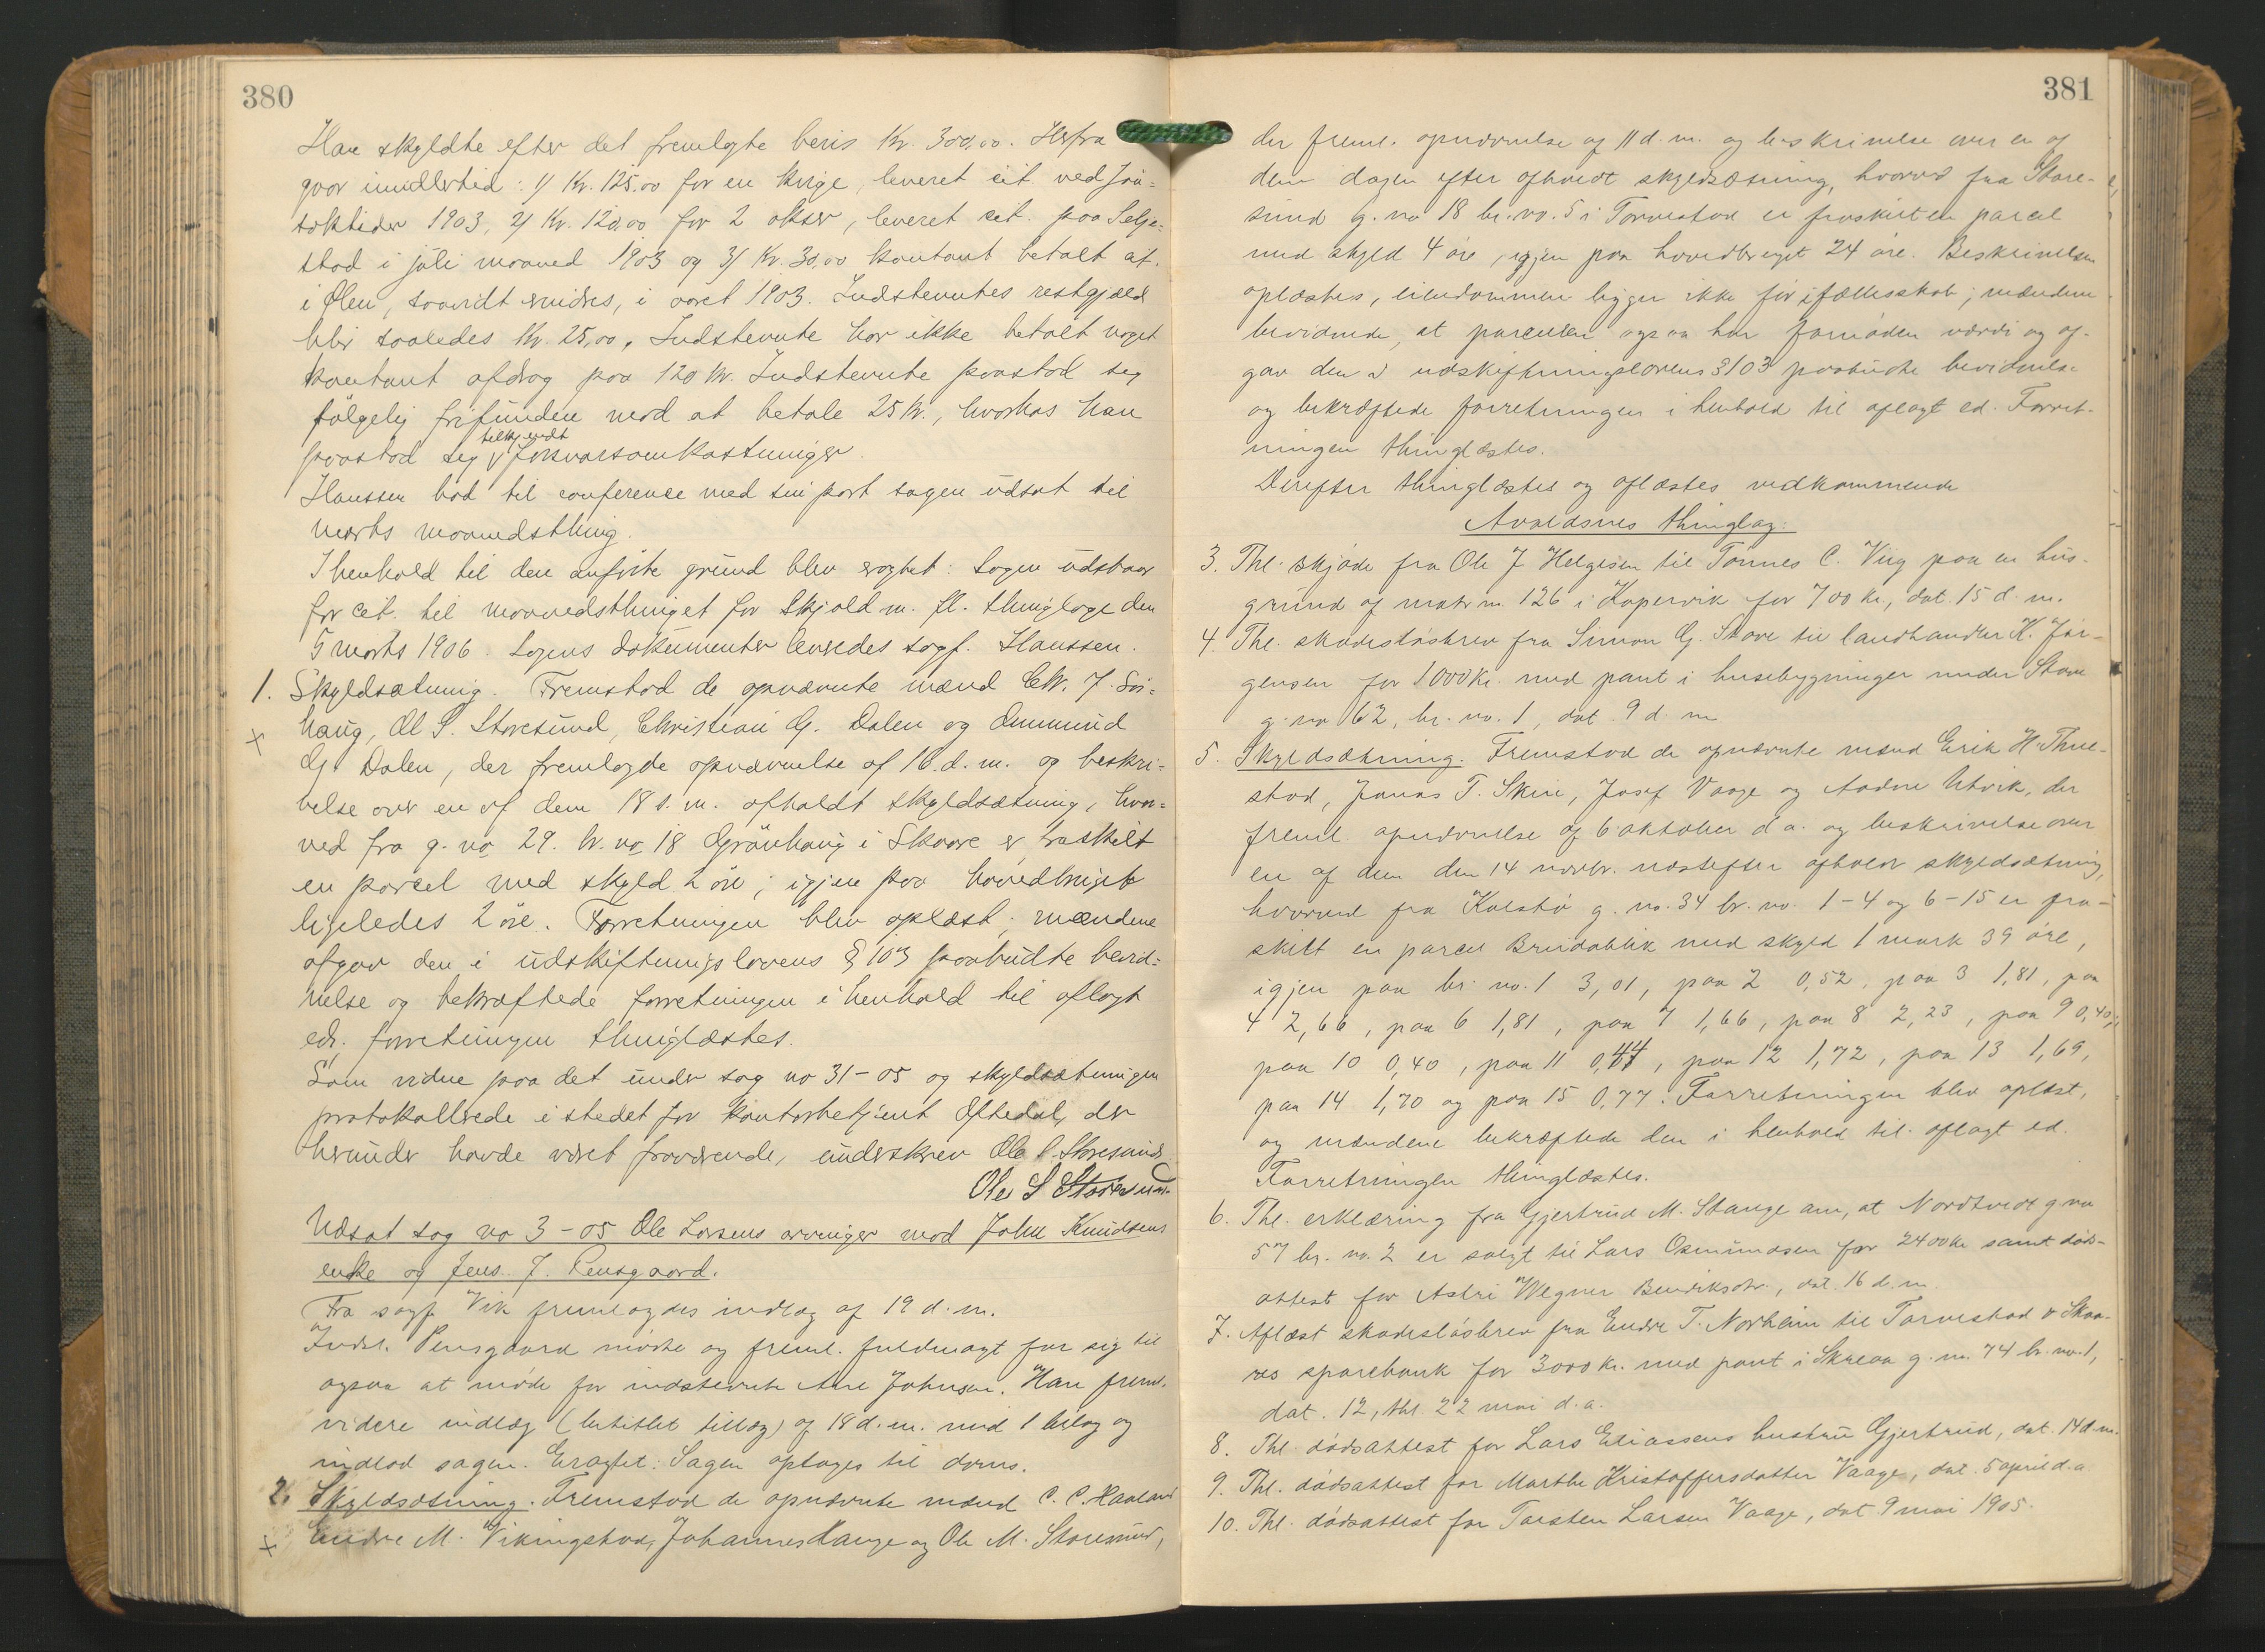 380
Han skyldte efter det fremlagte bevis Kr. 300,00. Herfra
gaar imidlertid: 1/ Kr. 125,00 for en kvige, leveret cit. ved Jon-
soktider 1903, 2/ Kr. 120,00 for 2 okser, leveret cit. paa Selje-
stad i juli maaned 1903 og 3/ Kr. 30,00 kontant betalt cit.
i Ølen, saavidt erindres, i aaret 1903. Indstevntes restgjæld
blir saaledes Kr. 25,00. Indstevnte har ikke betalt noget
kontant afdrag paa 120 kr. Indstevnte paastod seg
følgelig frifunden mod at betale 25 kr., hvorhos han
paastod seg tilkjendt forsvarsomkostninger.
Hanssen bad til conference med sin part sagen udsat til
marts maanedsthing.
I henhold til den anførte grund blev eragtet: Sagen udstaar
for cit. til maanedsthinget for Skjold m. fl. thinglage den
5 marts 1906. Sagens dokumenter leveredes sagf. Hanssen.
1. Skyldsætning. Fremstod de opnævnte mænd Chr. J. Sör-
haug, Ol S. Storesund, Christian G. Dalen og Ommund
G. Dalen, der fremlagde opnævnelse af 16. d. m. og beskri-
velse over en af dem 18 s. m. afholdt skyldsætning, hvor-
ved fra g. no 29. br. no 18 Grönhaug i Skaare er fraskilt
en parcel med skyld 2 öre; igjen paa hovedbruget
ligeledes 2 öre. Forretningen blev oplæst; mændene
afgav den i udskiftningslovens § 103 paabudte bevid-
nelse og bekræftede forretningen i henhold til aflagt
ed; forretningen thinglæstes.
Som vidne paa det under sag no 31-05 og skyldsætningen
protokollerede istedet for kontorbetjent Oftedal, der
herunder havde været fraværende, underskrev Ole S. Storesund.
Ole S Storesund
Udsat sag no 3-05 Ole Larsens arvinger mod John Knudsens
enke og Jens J. Rensgaard.
Fra sagf. Vik fremlagdes indlæg af 19 d. m.
Indst. Pensgaard mödte og freml. fuldmagt for sig til
ogsaa at möde for indstevnte Ane Johnsen. Han freml.
videre indlæg (betitlet tillæg) af 18 d. m. med 1 bilag og
indlod sagen. Eragtet: Sagen optages til doms.
2. Skyldsætning. Fremstod de opnævnte mænd C. C. Haaland
Endre M. Vikingstad, Johannes Hauge og Ole M. Storesund,
381
der freml. opnævnelse af 11 d. m. og beskrivelse over en af
dem dagen efter afholdt skyldsætning, hvorved fra Store-
sund g. no 18 br. no. 5 i Torvestad er fraskilt en parcel
med skyld 4 öre, igjen paa hovedbruget 24 öre. Beskrivelsen
oplæstes, eiendommen ligger ikke för i fællesskab; mændene
bevidnede, at parcellen ogsaa har fornöden værdi og af-
gav den i udskiftningslovens § 103 paabudte bevidnelse
og bekræftede forretningen i henhold til aflagt ed. Forret-
ningen thinglæstes.
Derefter thinglæstes og aflæstes vedkommende
Avaldsnes thinglag:
3. Thl. skjöde fra Ole J Helgesen til Tönnes C. Viig paa en hus-
grund af matr. no 126 i Kopervik for 700 kr., dat. 15 d. m.
4. Thl. skadeslösbrev fra Simon G. Stave til landhandler K. Jör-
gensen for 1000 kr. med pant i husebygninger under Stave
g. no 62, br. no. 1, dat. 9 d. m
5. Skyldsætning. Fremstod de opnævnte mænd Erik H. Thue-
stad, Jonas T. Skeie, Josef Vaage og Aadne Utvik, der
freml. opnævnelse af 6 oktober d. a. og beskrivelse over
en af dem den 14 novbr. næstefter afholdt skyldsætning,
hvorved fra Kolstö g. no. 34 br. no. 1-4 og 6-15 er fra-
skilt en parcel Breidablik med skyld 1 mark 39 öre,
igjen paa br. no. 1 3,01, paa 2 0,52, paa 3 1,81, paa
4 2,66, paa 6 1,81, paa 7 1,66, paa 8 2,23, paa 9 0,40,
paa 10 0,40, paa 11 0,44, paa 12 1,72, paa 13 1,69,
paa 14 1,70 og paa 15 0,77. Forretningen blev oplæst,
og mændene bekræftede den i henhold til aflagt ed.
Forretningen thinglæstes.
6. Thl. erklæring fra Gjertrud M. Stange om, at Nordtvedt g no
57 br. no. 2 er solgt til Lars Osmundsen for 2400 kr samt döds-
attest for Astri Wegner Bendiksdtr., dat. 16 d. m.
7. Aflæst skadeslösbrev fra Endre T. Norheim til Torvestad & Skaa-
res sparebank for 3000 kr. med pant i Skreaa g. no. 74 br. no. 1,
dat. 12, thl. 22 mai d. a.
8. Thl. dödsattest for Lars Eliassens hustru Gjertrud, dat. 14 d. m.
9. Thl. dödsattest for Marthe Kristoffersdatter Vaage, dat. 5 april d. a
10. Thl. dödsattest for Torsten Larsen Vaage, dat. 9 mai 1905.